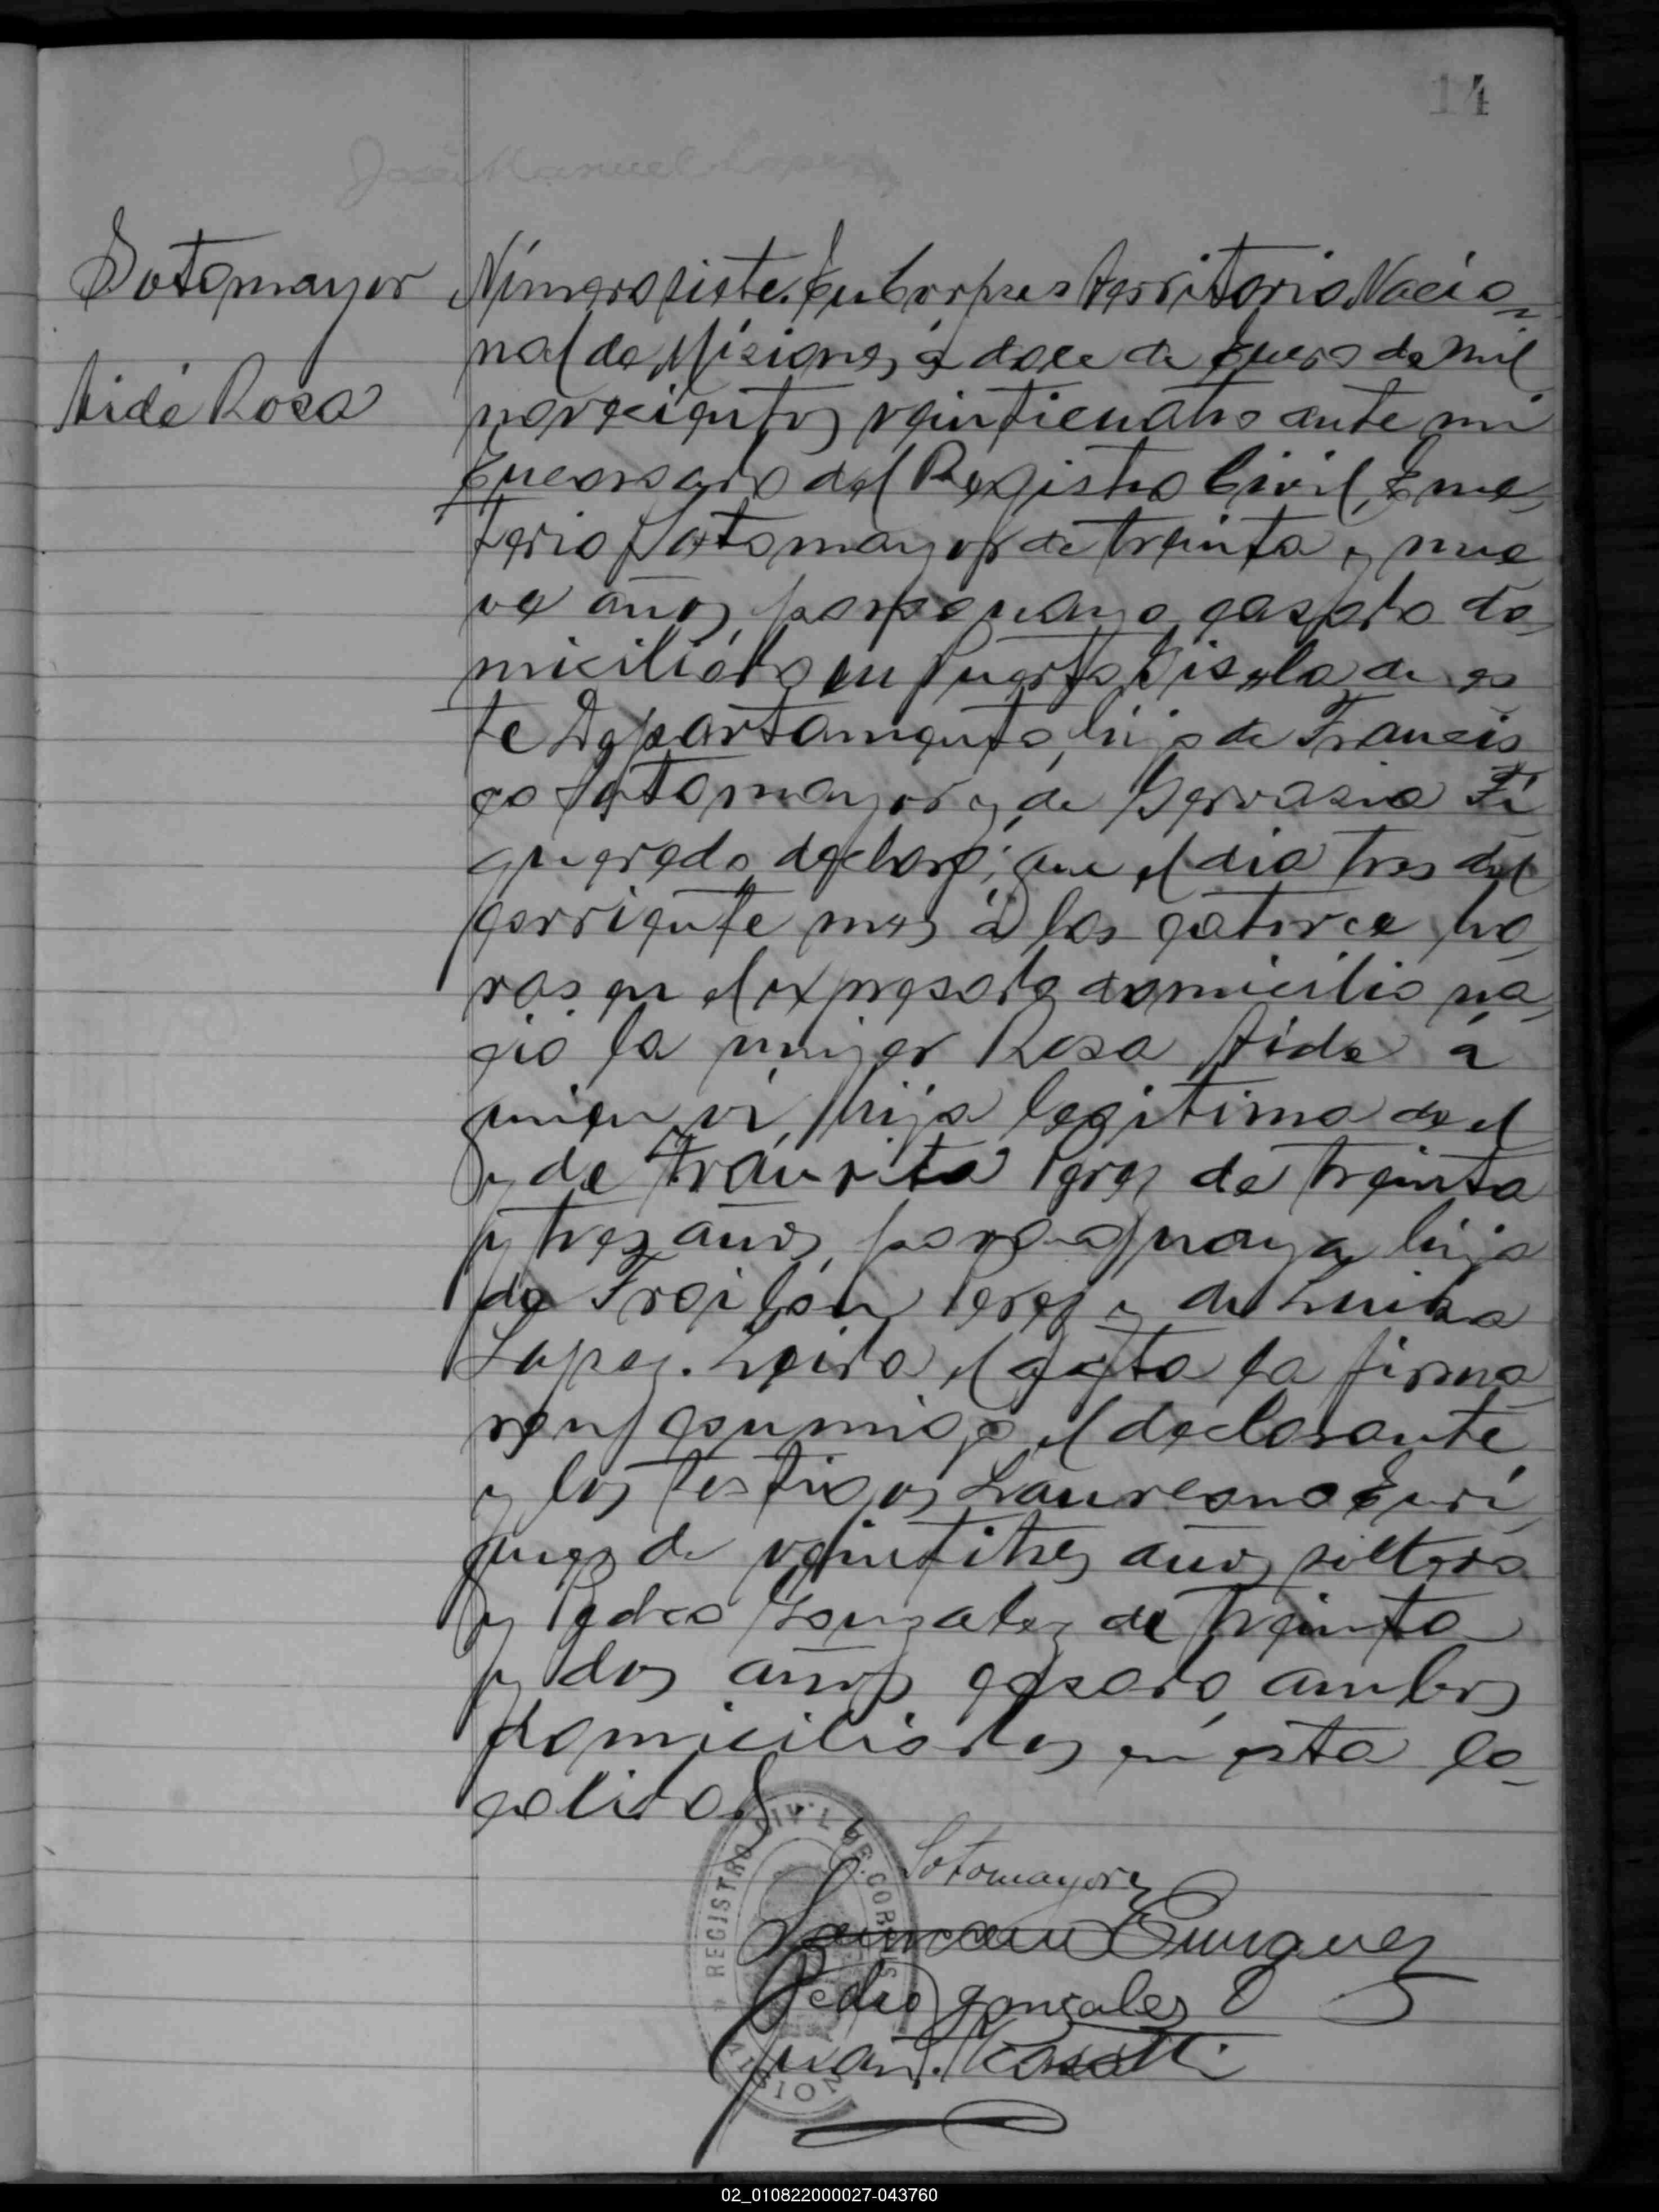 14
José Manuel Lopez
Sotomayor
Aidé Rosa
Número siete. En Corpus Territorio Nacio-
nal de Misiones, á doce de Enero de mil
novecientos veinticuatro ante mi
Encargado del Registro Civil, Eme-
terio Sotomayor de treinta y nue
ve años, paraguayo, casado do-
miciliado en Puerto Gisela de es
te Departamento, hijo de Francis
co Sotomayor y de Gervasia Fi
gueredo, declaró; que el dia tres del
corriente mes á las catorce ho-
ras en el expresado domicilio na-
ció la mujer Rosa Aide á
quien vi, hija legitima de el
y de Tránsita Perez de treinta
y tres años, paraguaya, hija
de Froilán Perez y de Luisa
Lopez. Leida el acta la firma-
ron conmigo el declarante
y los testigos Laureano Enri
quez de veintitres años, soltero
y Pedro Gonzalez de treinta
y dos años casado, ambos
domiciliados en esta lo-
calidad
REGISTRO CIVIL DE CORPUS
MISIONES
E. Sotomayor
Laureano Enriquez
Pedro Gonzales
Juan
02_010822000027-043760